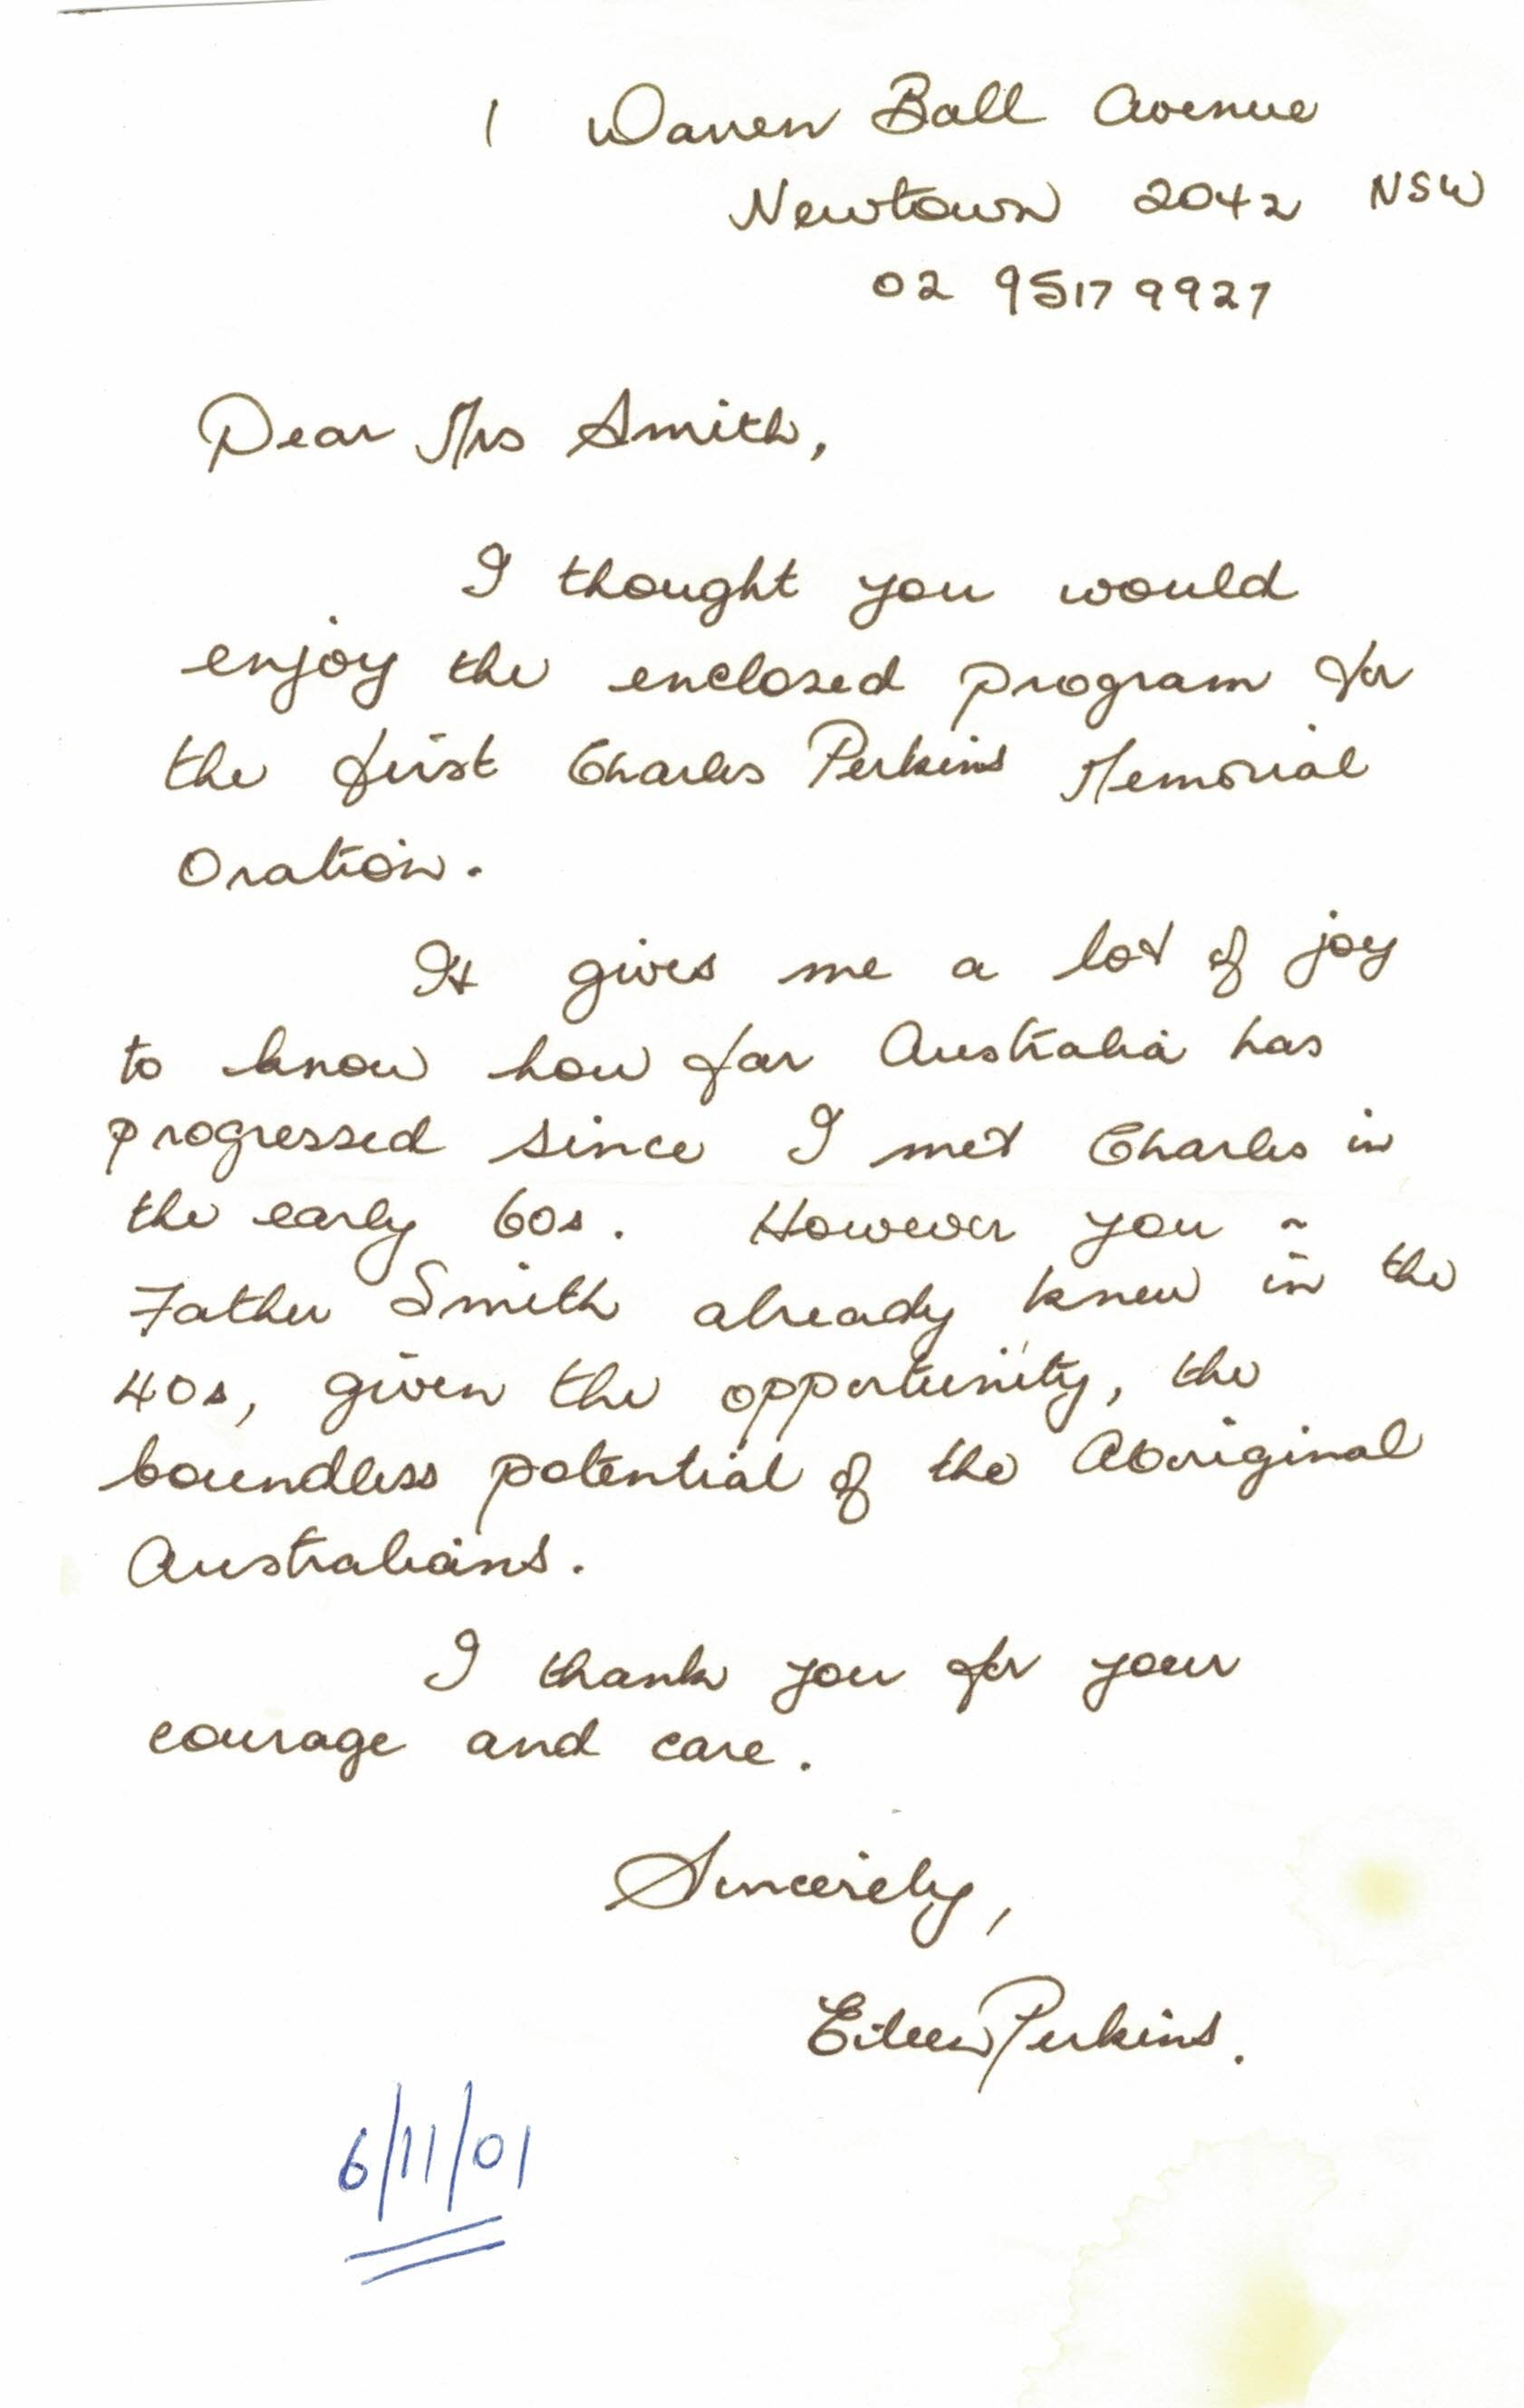 1 Warren Ball Avenue
Newtown 2042 NSW
02 9517 9927
Dear Mrs Smith,
I thought you would
enjoy the enclosed program for
the first Charles Perkins Memorial
Oration.
It gives me a lot of joy
to know how far Australia has
progressed since I met Charles in
the early 60s. However you ~
Father Smith already knew in the
40s, given the opportunity, the
boundless potential of the Aboriginal
Australians.
I thank you for your
courage and care.
Sincerely,
Eileen Perkins.
6/11/01